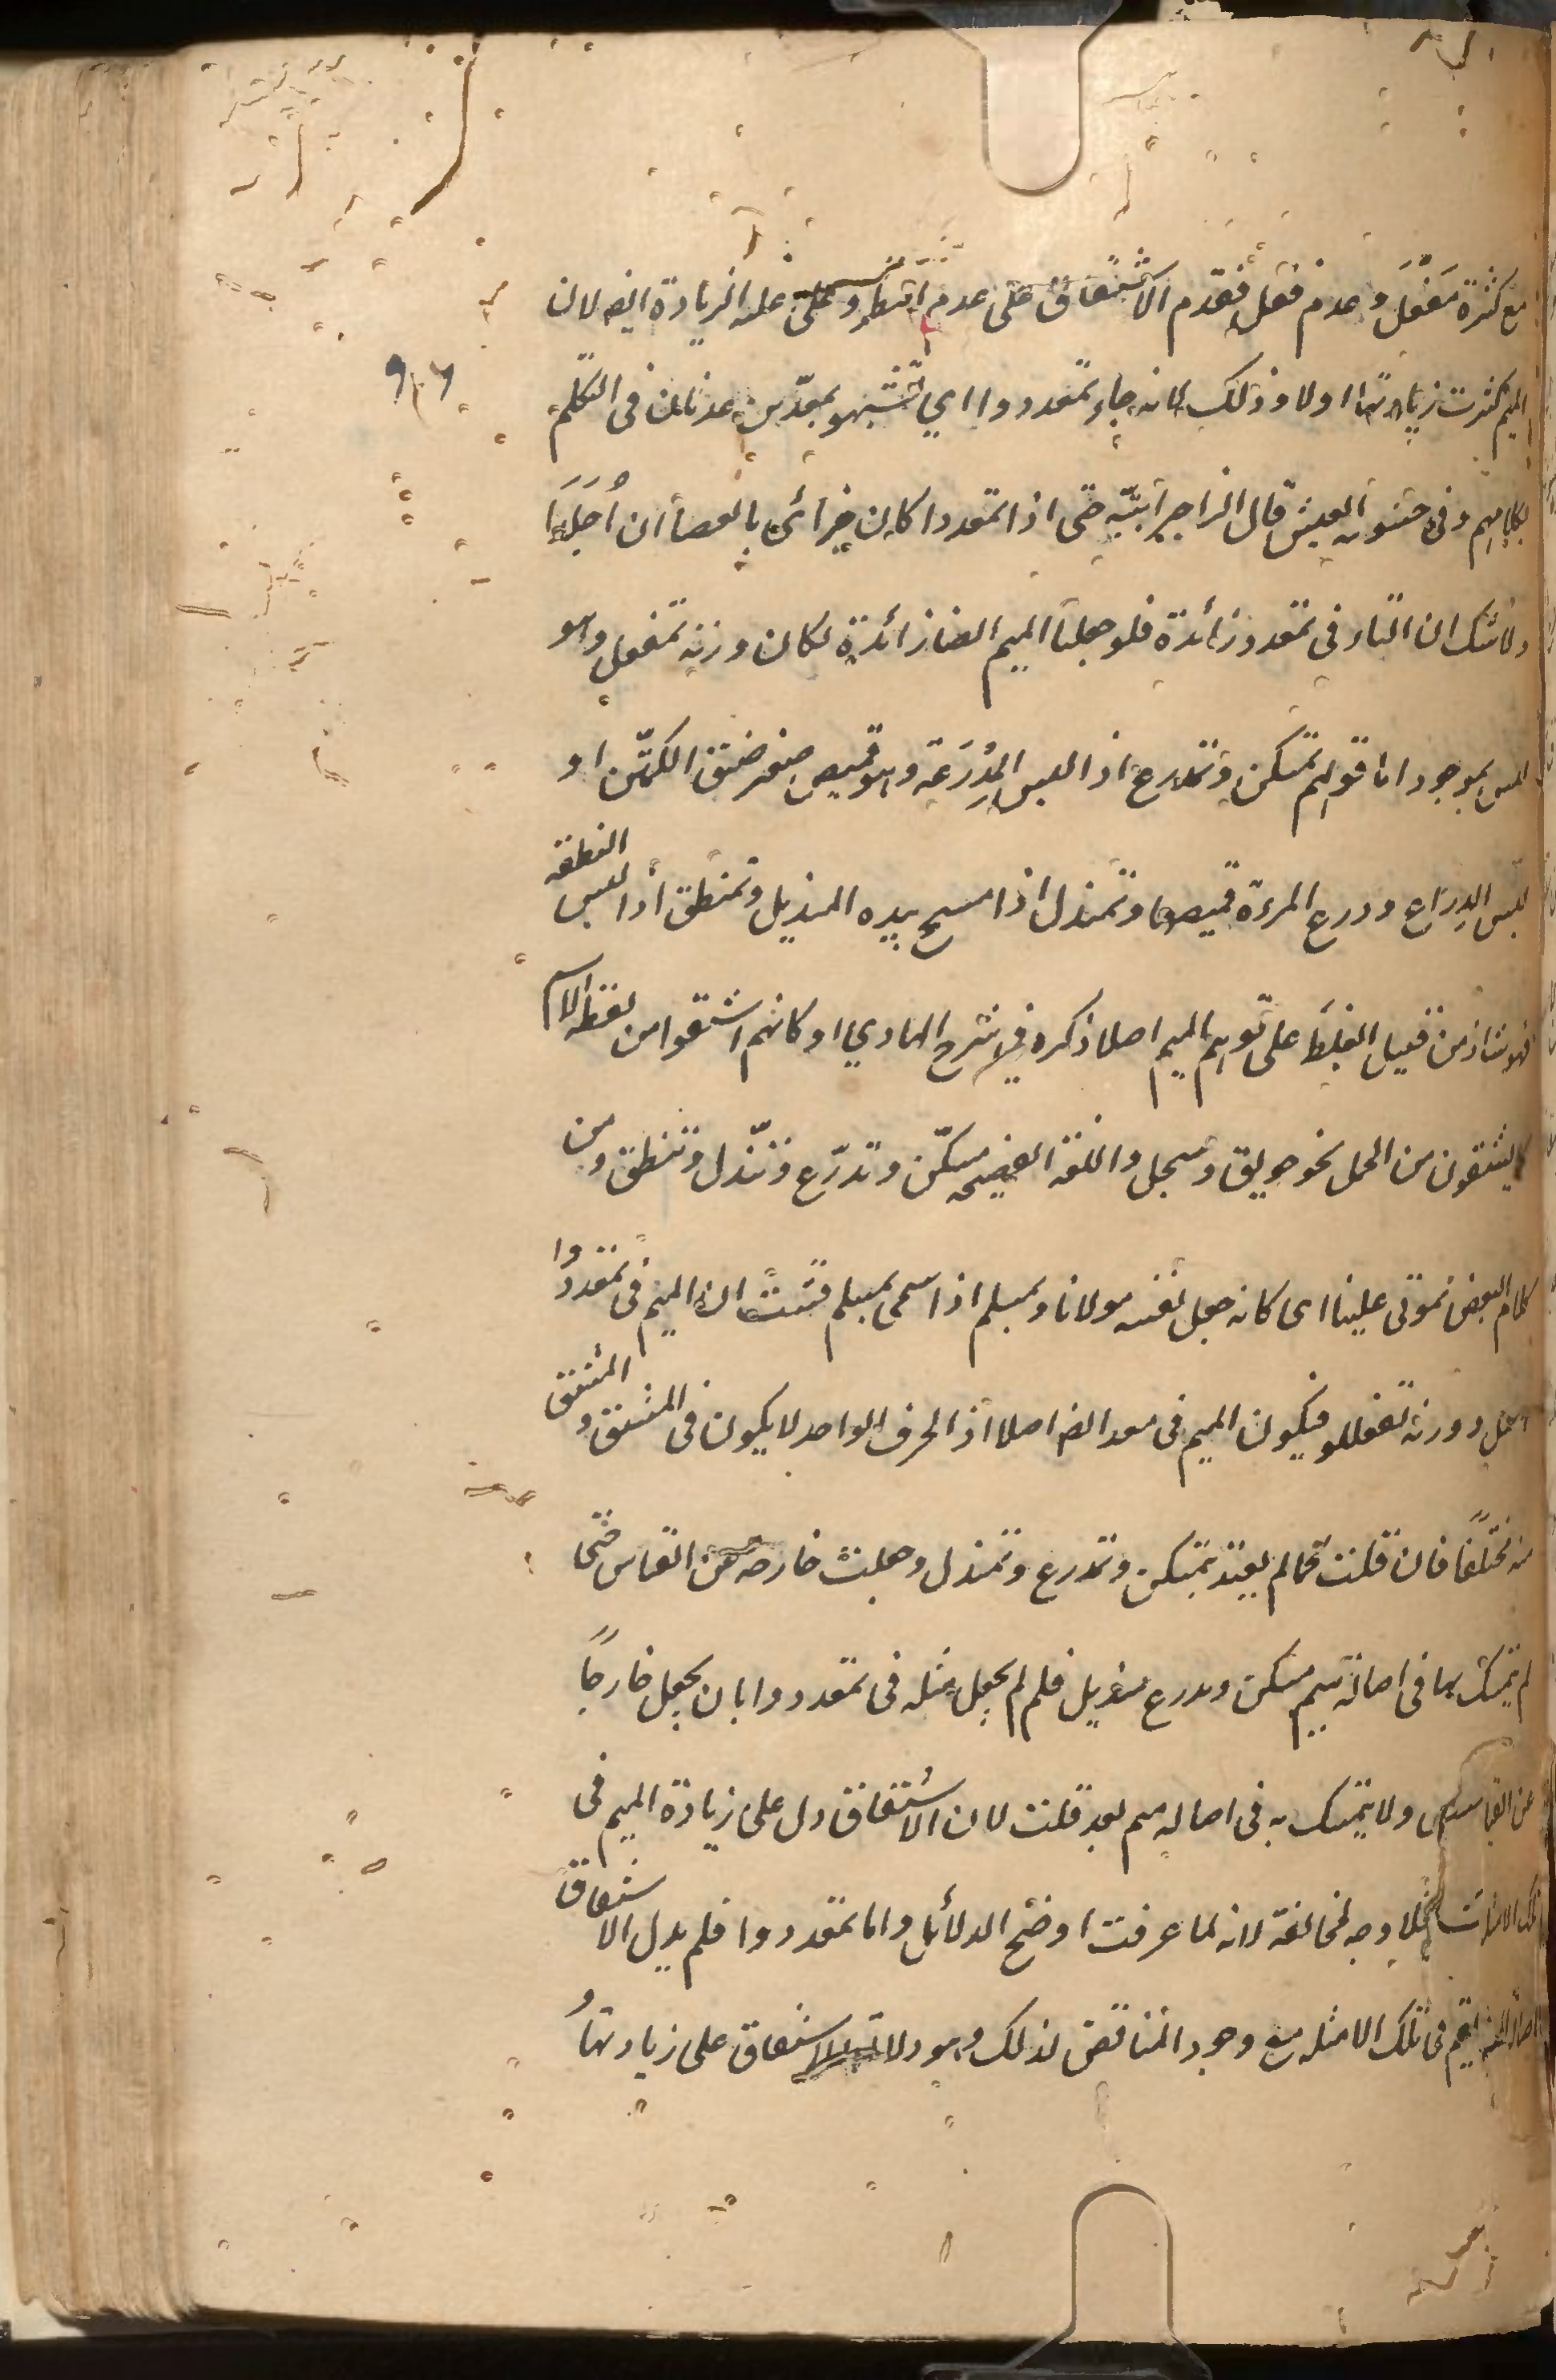 مع كثرة مَفْعَل وعدم فعل فقدم الاشتقاق على عدم النظير وعلى غلبه الزيادة ايضا لان
الميم كثرت زيادتها اولا وذلك لانه جاء تمعددوا اي تشبهو بمعد بن عدنان فى التكلم
بكلامهم وفى خشونه العيش قال الراجز ربيته حتى اذا تمعددا كان جزائى بالعصا ان اُجلَدَا
ولا شك ان التاء فى تمعدد زائدة فلو جعلنا الميم ايضا زائدة لكان وزنه تمفعل وهو
ليس بموجود اما قولهم تمسكن وتمدرع اذا لبس المِدْرَعَة وهو قميص صغير ضيق الكمّين او
لبس الدراع ودرع المرءة قميصها وتمندل اذا مسح بيده المنديل وتمنطق اذا لبس النطقه
فهو شاذ من قبيل الغلط على توهم الميم اصلا ذكره في شرح الهادي او كانهم اشتقوا من لفظ الاسم
كما يشتقون من الجمل نحو حولق وسجل واللغة الفصيحه تسكّن وتدرّع وتندّل وتنطق ومن
كلام البعض تمولى علينا اى كانه جعل نفسه مولانا وتمسلم اذا سمى بمسلم فثبت ان الميم فى تمعددوا
اصل ووزنه تفعللو فيكون الميم فى معد ايضا اصلا اذ الحرف الواحد لا يكون فى المشتق و المشتق
منه مختلفا فان قلت كما لم يعتد بتمسكن وتمدرع وتمندل وجعلت خارجه عن القياس حتى
لم يتمسك بها فى اصالة ميم مسكن ومدرع منديل فلم لم يجعل مثله فى تمعددوا بان يجعل خارجًا
عن القياس ولا يتمسك به فى اصاله ميم معد قلت لان الاشتقاق دل على زيادة الميم فى
تلك الامثلة فلا وجه لمخالفة لانه لما عرفت اوضح الدلائل واما تمعددوا فلم يدل الاشتقاق
الميم فى تلك الامثله مع وجود المناقض لذلك وهو دلالة الاشتقاق على زيادتها